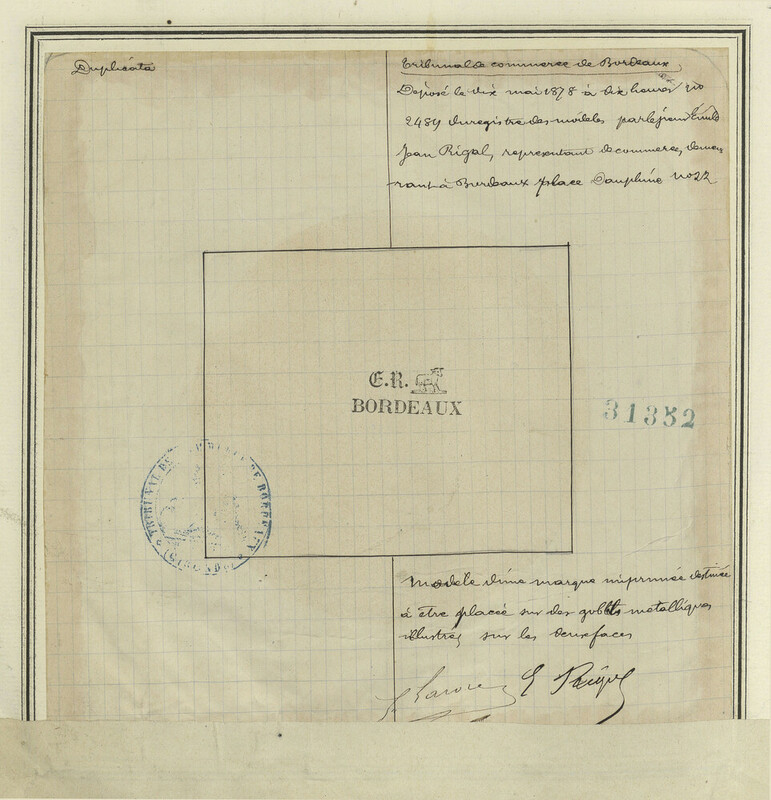 Duplicata
Tribunal de commerce de Bordeaux
Déposé le dix mai 1878 à dix heures no
2489 du registre des modèles par le sieur Emile
Jean Rigal, représentant de commerce, demeu
rant à Bordeaux place Dauphine no 22
E.R.
BORDEAUX
31352
TRIBUNAL DE COMMERCE DE BORDEAUX
(GIRONDE)
Modèle d'une marque imprimée destinée
à être placée sur des gobelets métalliques
illustrés sur les deux faces
E Rigal